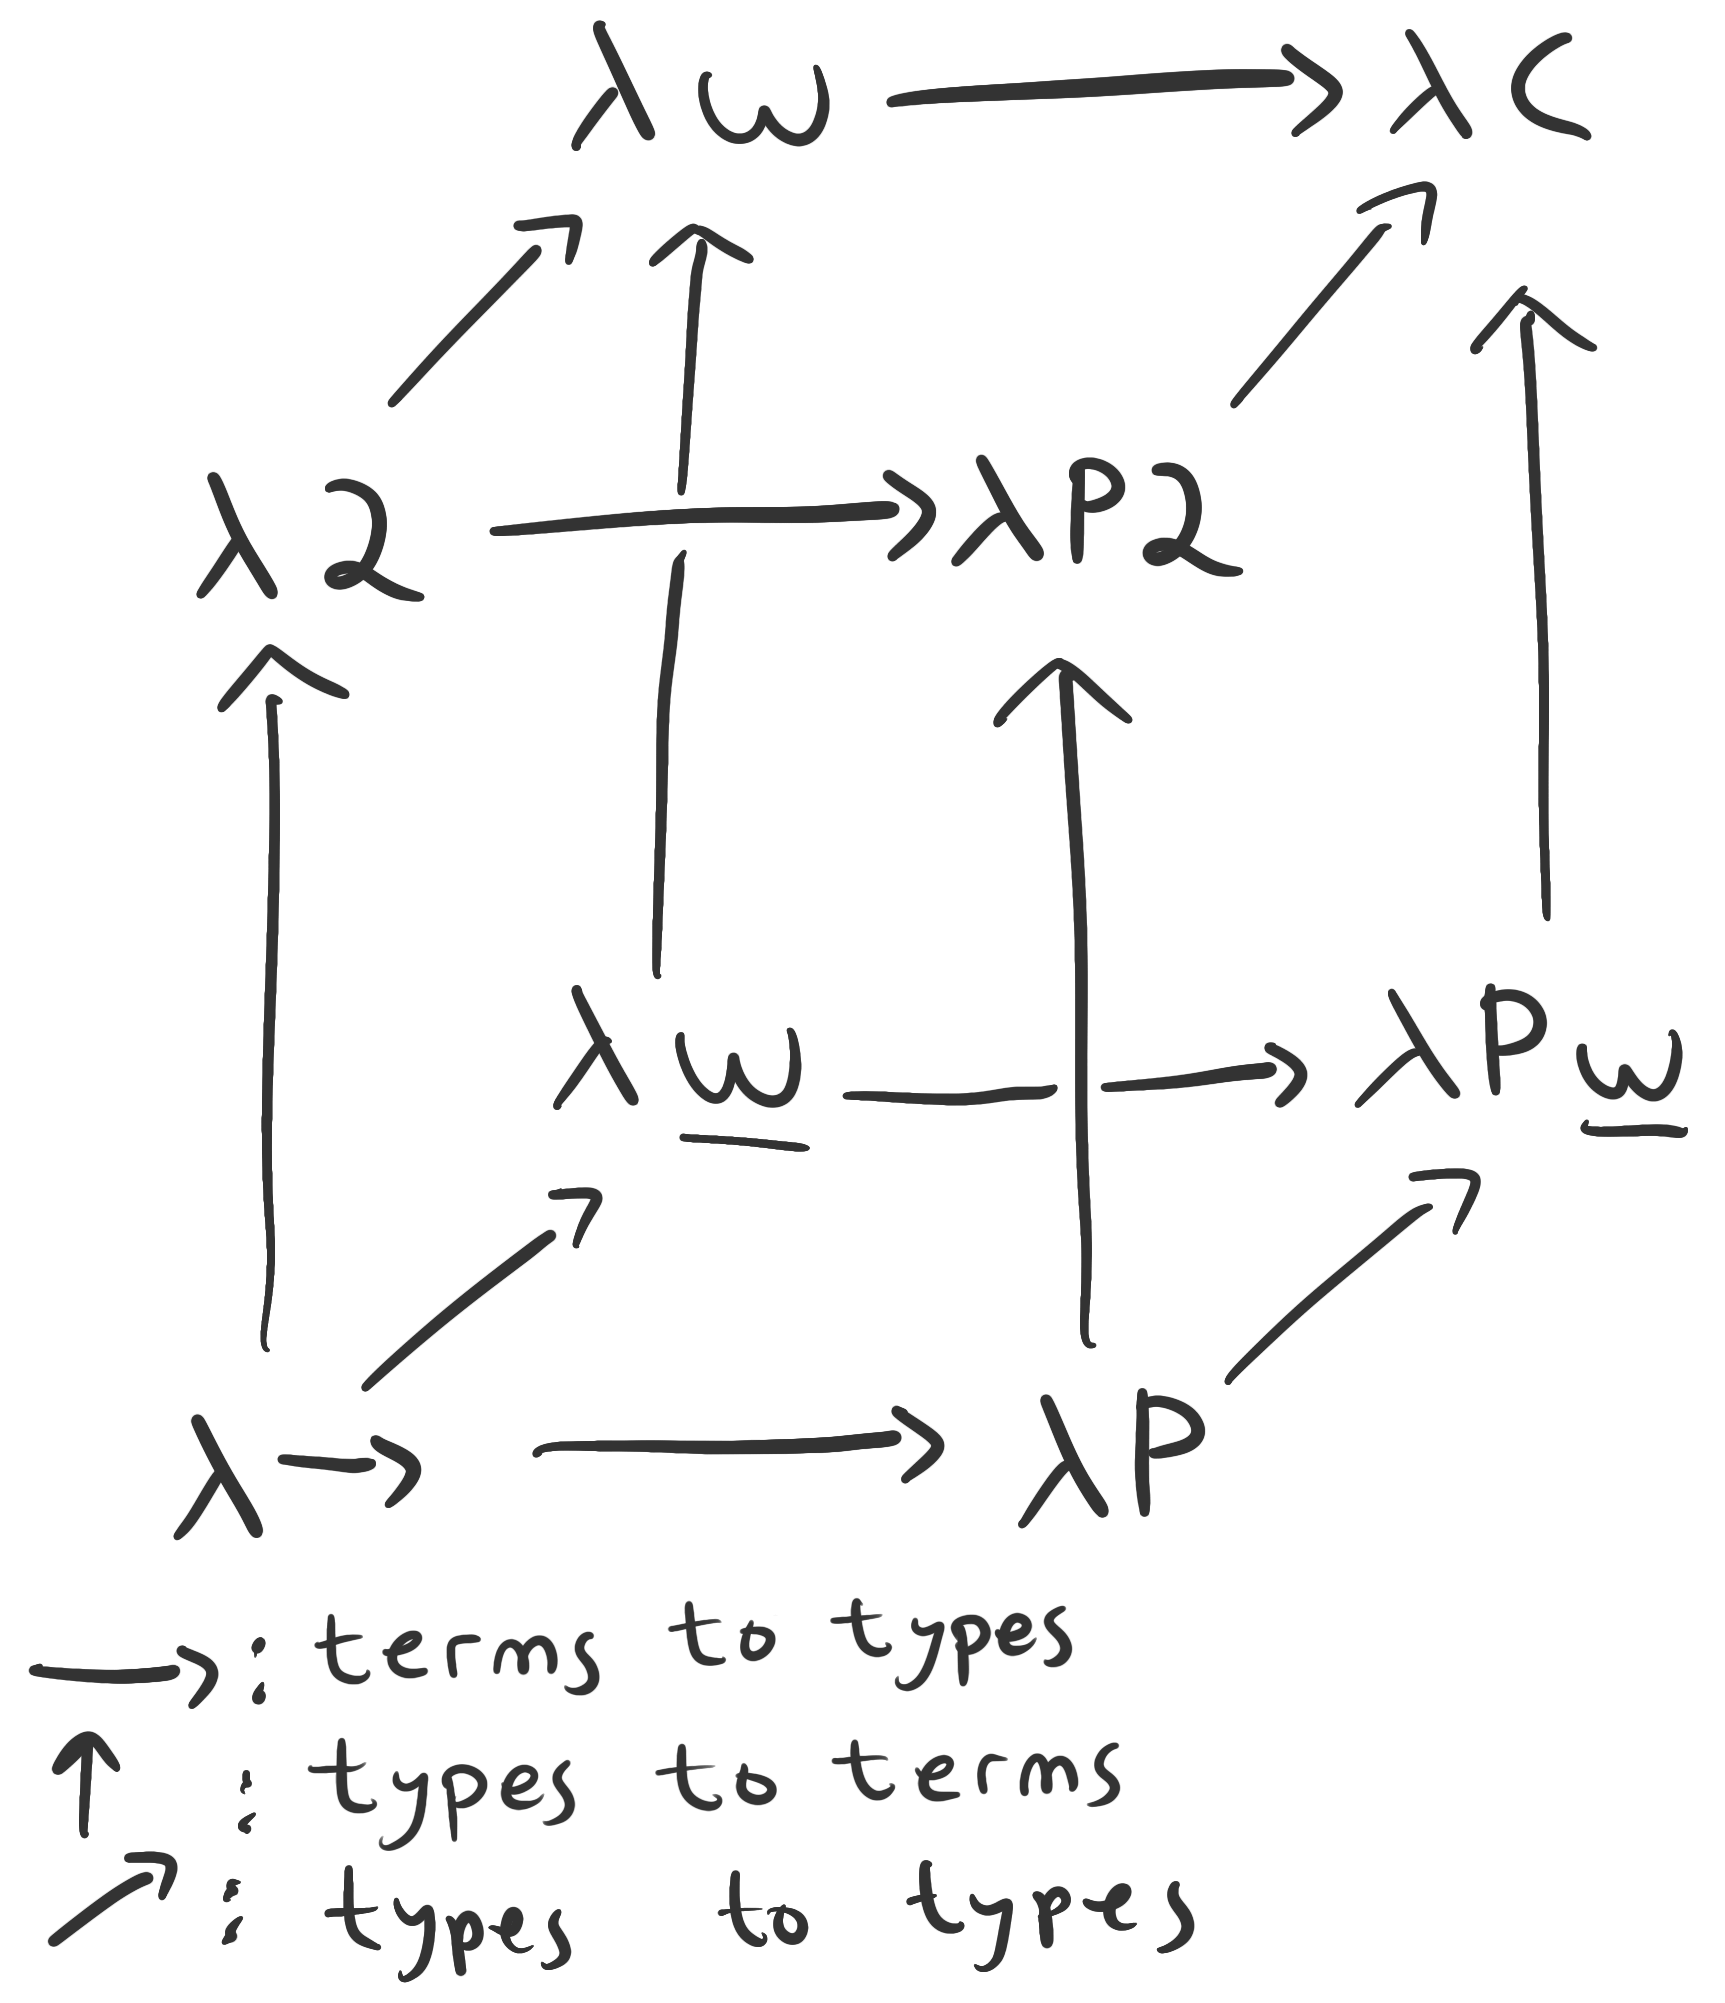 λω → λC
λ2 → λP2
λω → λPω
λ→ → λP
→ : terms to types
↑ : types to terms
↗ : types to types